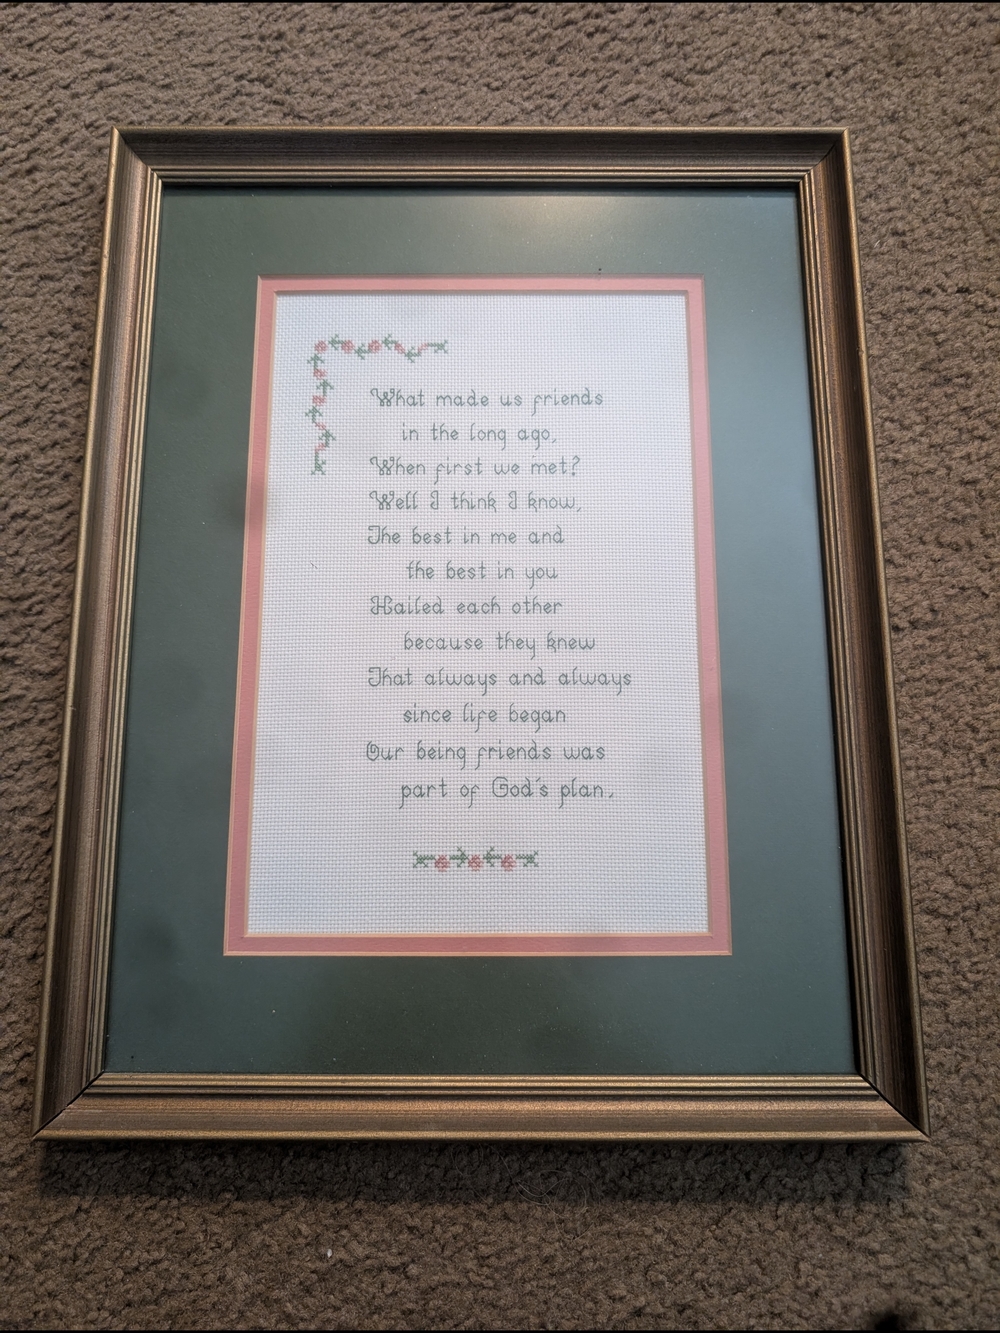 What made us friends
in the long ago,
When first we met?
Well I think I know,
The best in me and
the best in you
Hailed each other
because they knew
That always and always
since life began
Our being friends was
part of God's plan.